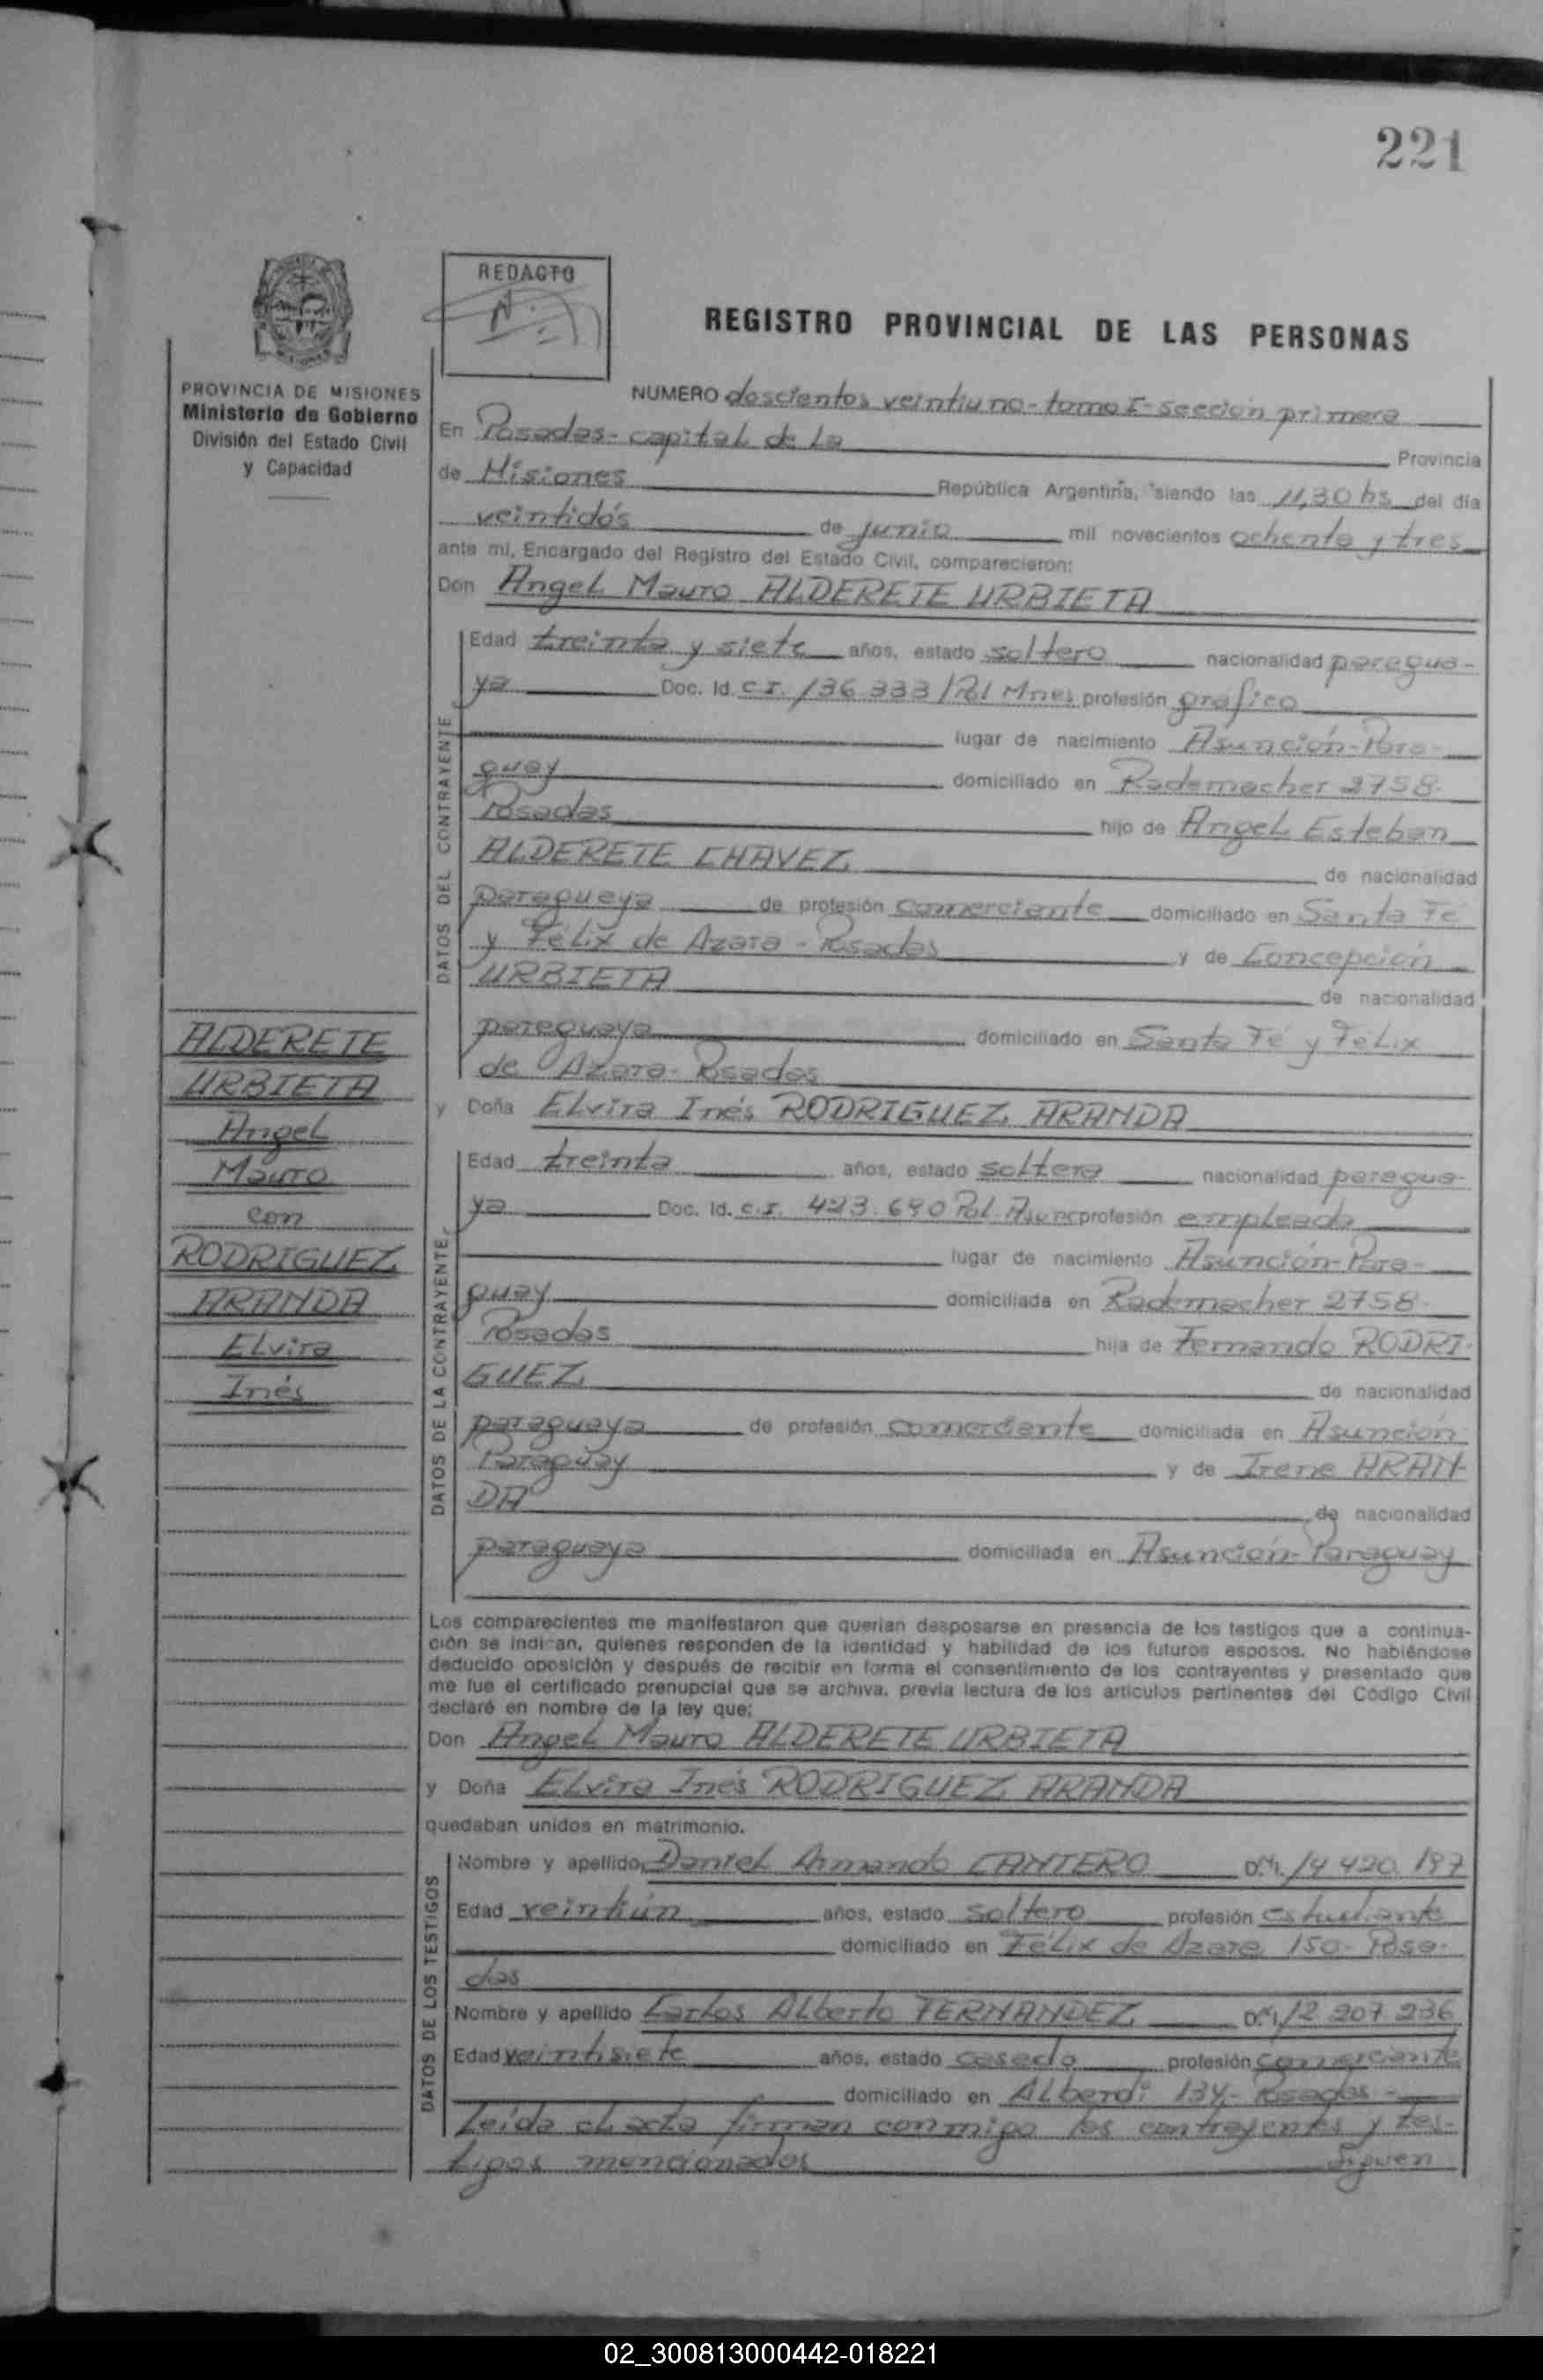 221
REDACTO
REGISTRO PROVINCIAL DE LAS PERSONAS
PROVINCIA DE MISIONES
Ministerio de Gobierno
División del Estado Civil
y Capacidad
NUMERO doscientos veintiuno - tomo I - sección primera
En Posadas - capital de la Provincia
de Misiones República Argentina, siendo las 11,30 hs del día
veintidós de junio mil novecientos ochenta y tres
ante mi, Encargado del Registro del Estado Civil, comparecieron:
Don Angel Mauro ALDERETE URBIETA
DATOS DEL CONTRAYENTE
Edad treinta y siete años, estado soltero nacionalidad paragua-
ya Doc. Id. C.I. 136 333 / Pol Mnes profesión gráfico
lugar de nacimiento Asunción - Para-
guay domiciliado en Rademacher 2758 -
Posadas hijo de Angel Esteban
ALDERETE CHAVEZ de nacionalidad
paraguaya de profesión comerciante domiciliado en Santa Fé
y Félix de Azara - Posadas y de Concepción
URBIETA de nacionalidad
paraguaya domiciliado en Santa Fé y Félix
de Azara - Posadas
y Doña Elvira Inés RODRIGUEZ ARANDA
DATOS DE LA CONTRAYENTE
Edad treinta años, estado soltera nacionalidad paragua-
ya Doc. Id. c.I. 423.690 Pol Asunc profesión empleada
lugar de nacimiento Asunción - Para-
guay domiciliada en Rademacher 2758 -
Posadas hija de Fernando RODRI-
GUEZ de nacionalidad
paraguaya de profesión comerciante domiciliada en Asunción
Paraguay y de Irene ARAN-
DA de nacionalidad
paraguaya domiciliada en Asunción - Paraguay
ALDERETE
URBIETA
Angel
Mauro
con
RODRIGUEZ
ARANDA
Elvira
Inés
Los comparecientes me manifestaron que querían desposarse en presencia de los testigos que a continua-
ción se indican, quienes responden de la identidad y habilidad de los futuros esposos. No habiéndose
deducido oposición y después de recibir en forma el consentimiento de los contrayentes y presentado que
me fue el certificado prenupcial que se archiva, previa lectura de los artículos pertinentes del Código Civil
declaré en nombre de la ley que:
Don Angel Mauro ALDERETE URBIETA
y Doña Elvira Inés RODRIGUEZ ARANDA
quedaban unidos en matrimonio.
DATOS DE LOS TESTIGOS
Nombre y apellido Daniel Armando CANTERO D.N.I. 14 420 197
Edad veintiún años, estado soltero profesión estudiante
domiciliado en Félix de Azara 150 - Posa-
das
Nombre y apellido Carlos Alberto FERNANDEZ D.N.I. 12 207 236
Edad veintisiete años, estado casado profesión comerciante
domiciliado en Alberdi 134 - Posadas -
Leída el acta firman conmigo los contrayentes y tes-
tigos mencionados Siguen
02_300813000442-018221